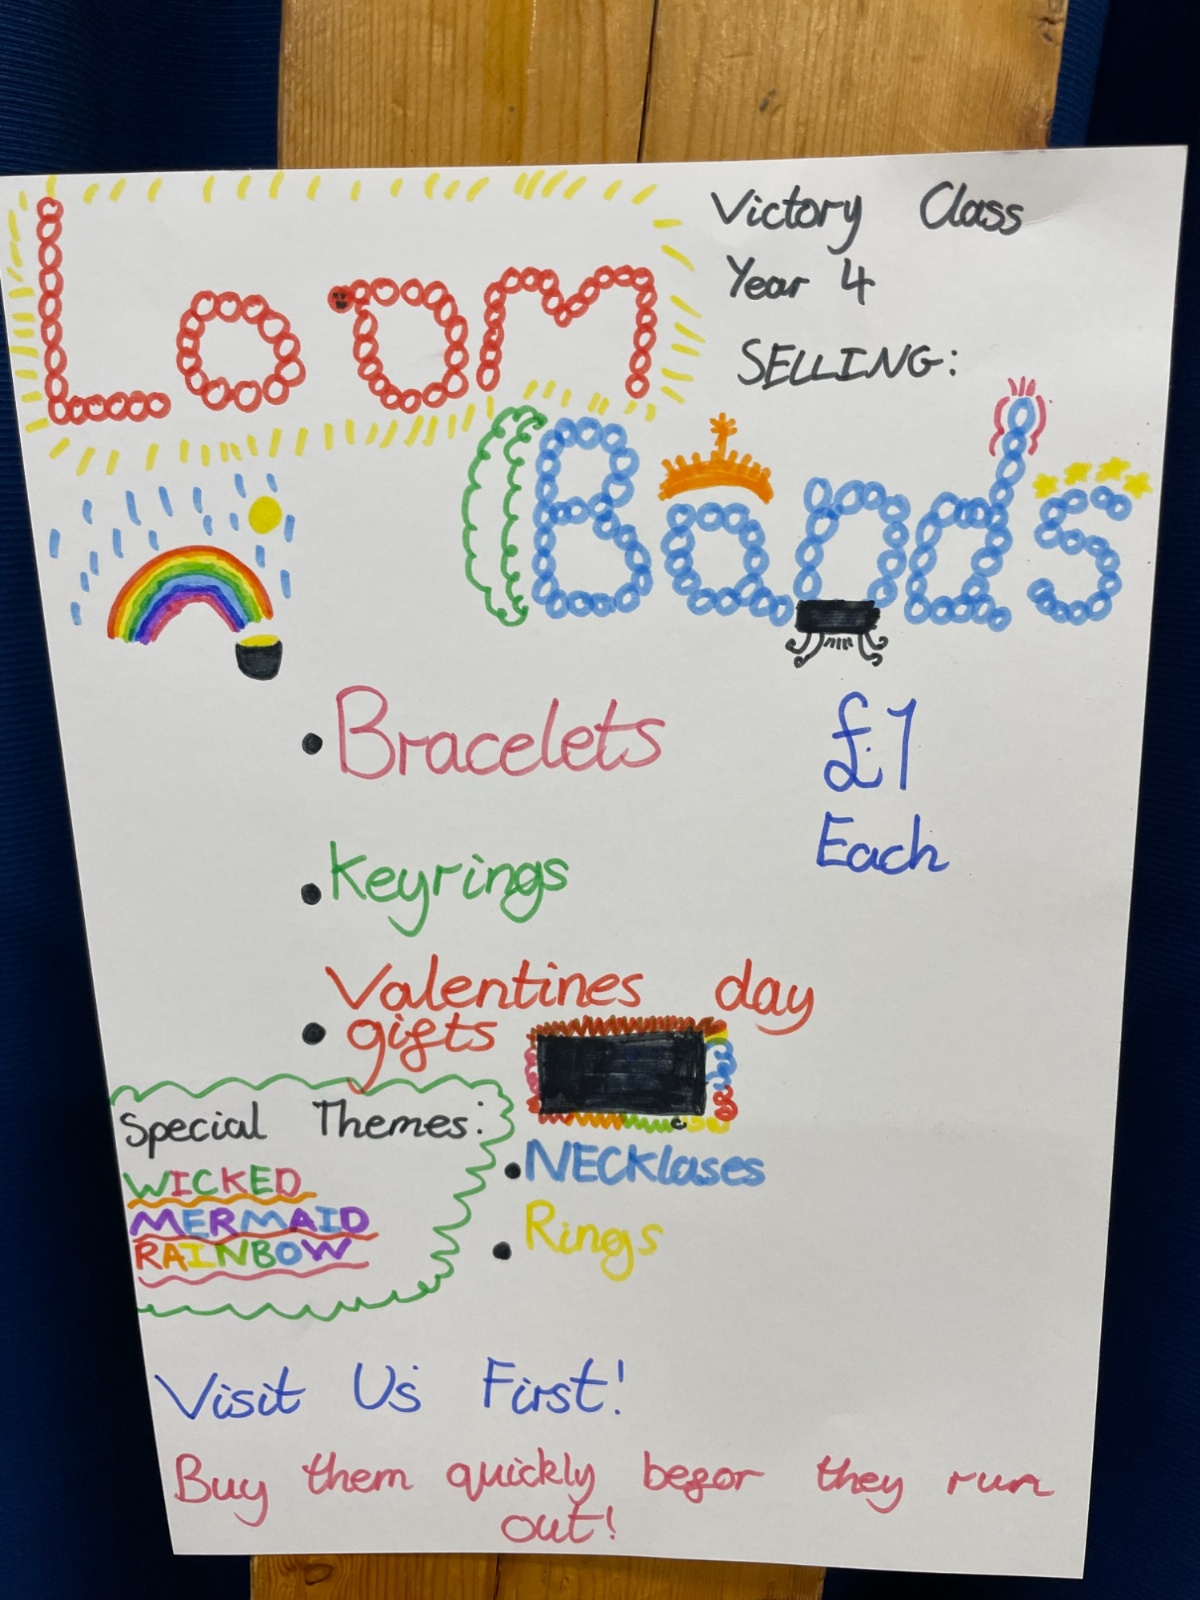 Loom
Victory Class
Year 4
SELLING:
Bands
• Bracelets
£1
Each
• Keyrings
Valentines day
• gifts
Special Themes:
WICKED
MERMAID
RAINBOW
• NECKlases
• Rings
Visit Us First!
Buy them quickly befor they run
out!